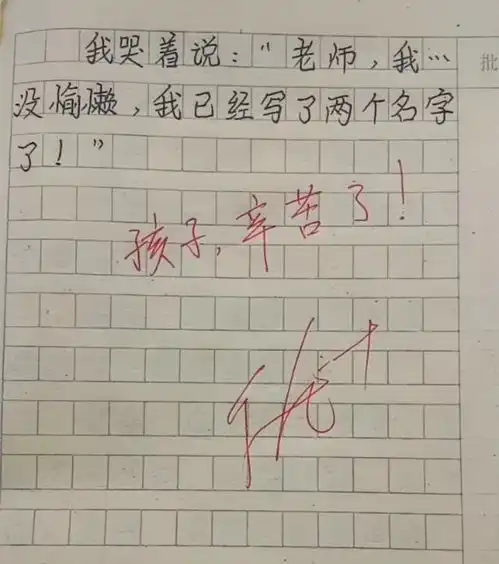 我哭着说："老师,我…
没愉懒,我已经写了两个名字
了!"
孩子,辛苦了!
优+
批